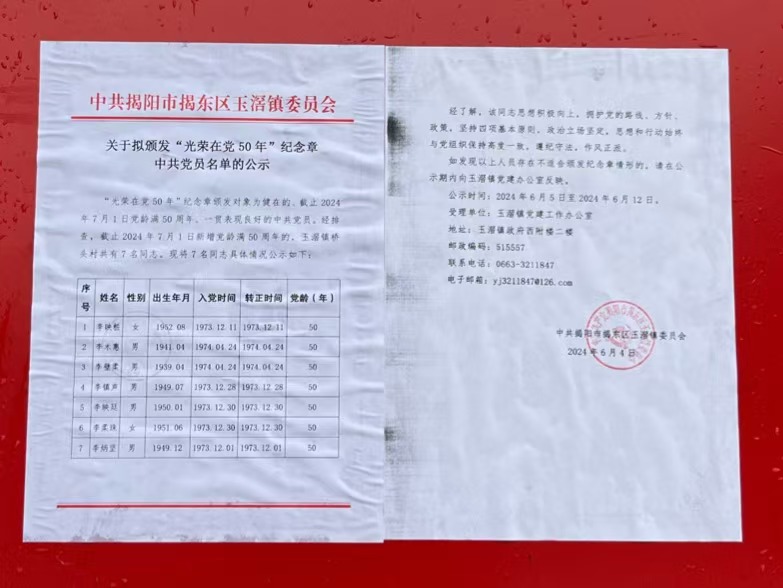 中共揭阳市揭东区玉滘镇委员会
关于拟颁发“光荣在党50年”纪念章
中共党员名单的公示
“光荣在党50年”纪念章颁发对象为健在的、截止2024
年7月1日党龄满50周年、一贯表现良好的中共党员。经排
查，截止2024年7月1日新增党龄满50周年的、玉滘镇桥
头村共有7名同志。现将7名同志具体情况公示如下：
序号 姓名 性别 出生年月 入党时间 转正时间 党龄（年）
1 李映 女 1952.08 1973.12.11 1973.12.11 50
2 李木惠 男 1941.04 1974.04.24 1974.04.24 50
3 李 男 1939.04 1974.04.24 1974.04.24 50
4 李镇声 男 1949.07 1973.12.28 1973.12.28 50
5 李映 男 1950.01 1973.12.30 1973.12.30 50
6 李柔珠 女 1951.06 1973.12.30 1973.12.30 50
7 李炳坚 男 1949.12 1973.12.01 1973.12.01 50
经了解，该同志思想积极向上，拥护党的路线、方针、
政策，坚持四项基本原则，政治立场坚定，思想和行动始终
与党组织保持高度一致，遵纪守法，作风正派。
如发现以上人员存在不适合颁发纪念章情形的，请在公
示期内向玉滘镇党建办公室反映。
公示时间：2024年6月5日至2024年6月12日。
受理单位：玉滘镇党建工作办公室
地址：玉滘镇政府西附楼二楼
邮政编码：515557
联系电话：0663-3211847
电子邮箱：yj3211847@126.com
中共揭阳市揭东区玉滘镇委员会
2024年6月4日